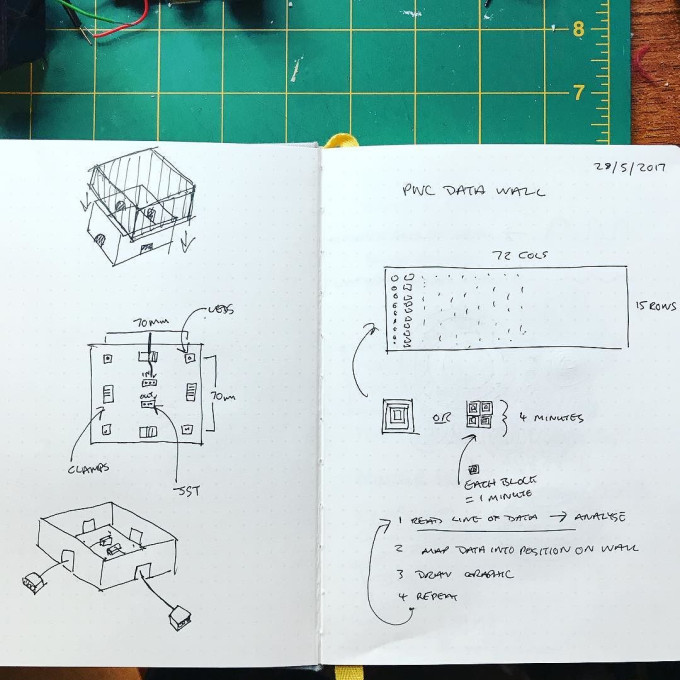 8
7
70mm
LEDS
IN
OUT
70mm
CLAMPS
JST
28/5/2017
PWC DATA WALL
72 COLS
15 ROWS
OR
4 MINUTES
EACH BLOCK
= 1 MINUTE
1 READ LINE OF DATA → ANALYSE
2 MAP DATA INTO POSITION ON WALL
3 DRAW GRAPHIC
4 REPEAT